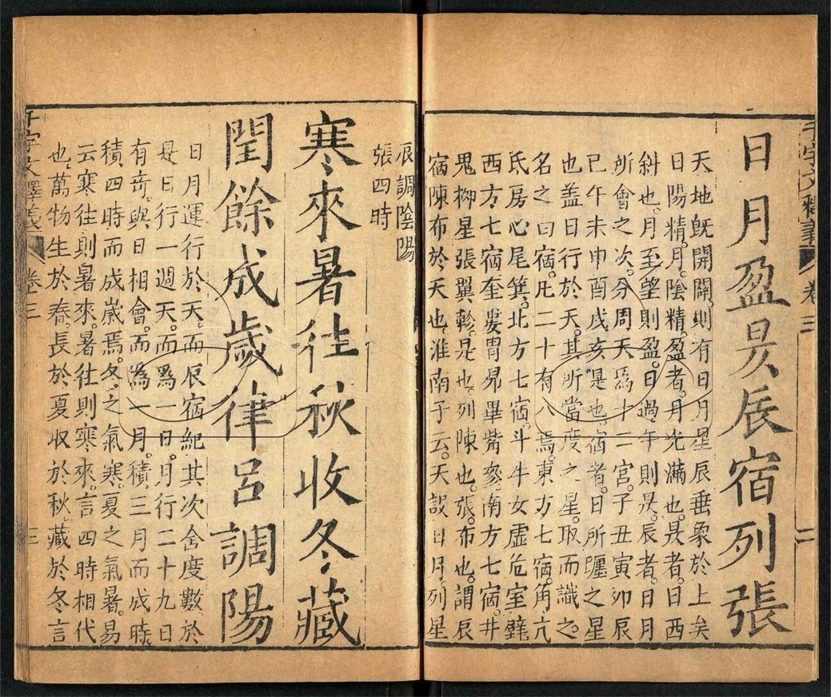 千字文釋義 卷三 二
日月盈昃辰宿列張
天地旣開闢則有日月星辰垂象於上矣
日陽精月陰精盈者月光滿也昃者日西
斜也月至望則盈日過午則昃辰者日月
所會之次分周天爲十二宮子丑寅卯辰
巳午未申酉戌亥是也宿者日所躔之星
也蓋日行於天其所當度之星取而識之
名之曰宿凡二十有八焉東方七宿角亢
氐房心尾箕北方七宿斗牛女虛危室壁
西方七宿奎婁胃昴畢觜參南方七宿井
鬼柳星張翼軫是也列陳也張布也謂辰
宿陳布於天也淮南子云天設日月列星
辰調陰陽
張四時
寒來暑往秋收冬藏
閏餘成歲律呂調陽
日月運行於天而辰宿紀其次舍度數於
是日行一週天而爲一日月行二十九日
有奇與日相會而爲一月積三月而成時
積四時而成嵗焉冬之氣寒夏之氣暑易
云寒往則暑來暑往則寒來言四時相代
也萬物生於春長於夏收於秋藏於冬言
千字文釋義 卷三 三